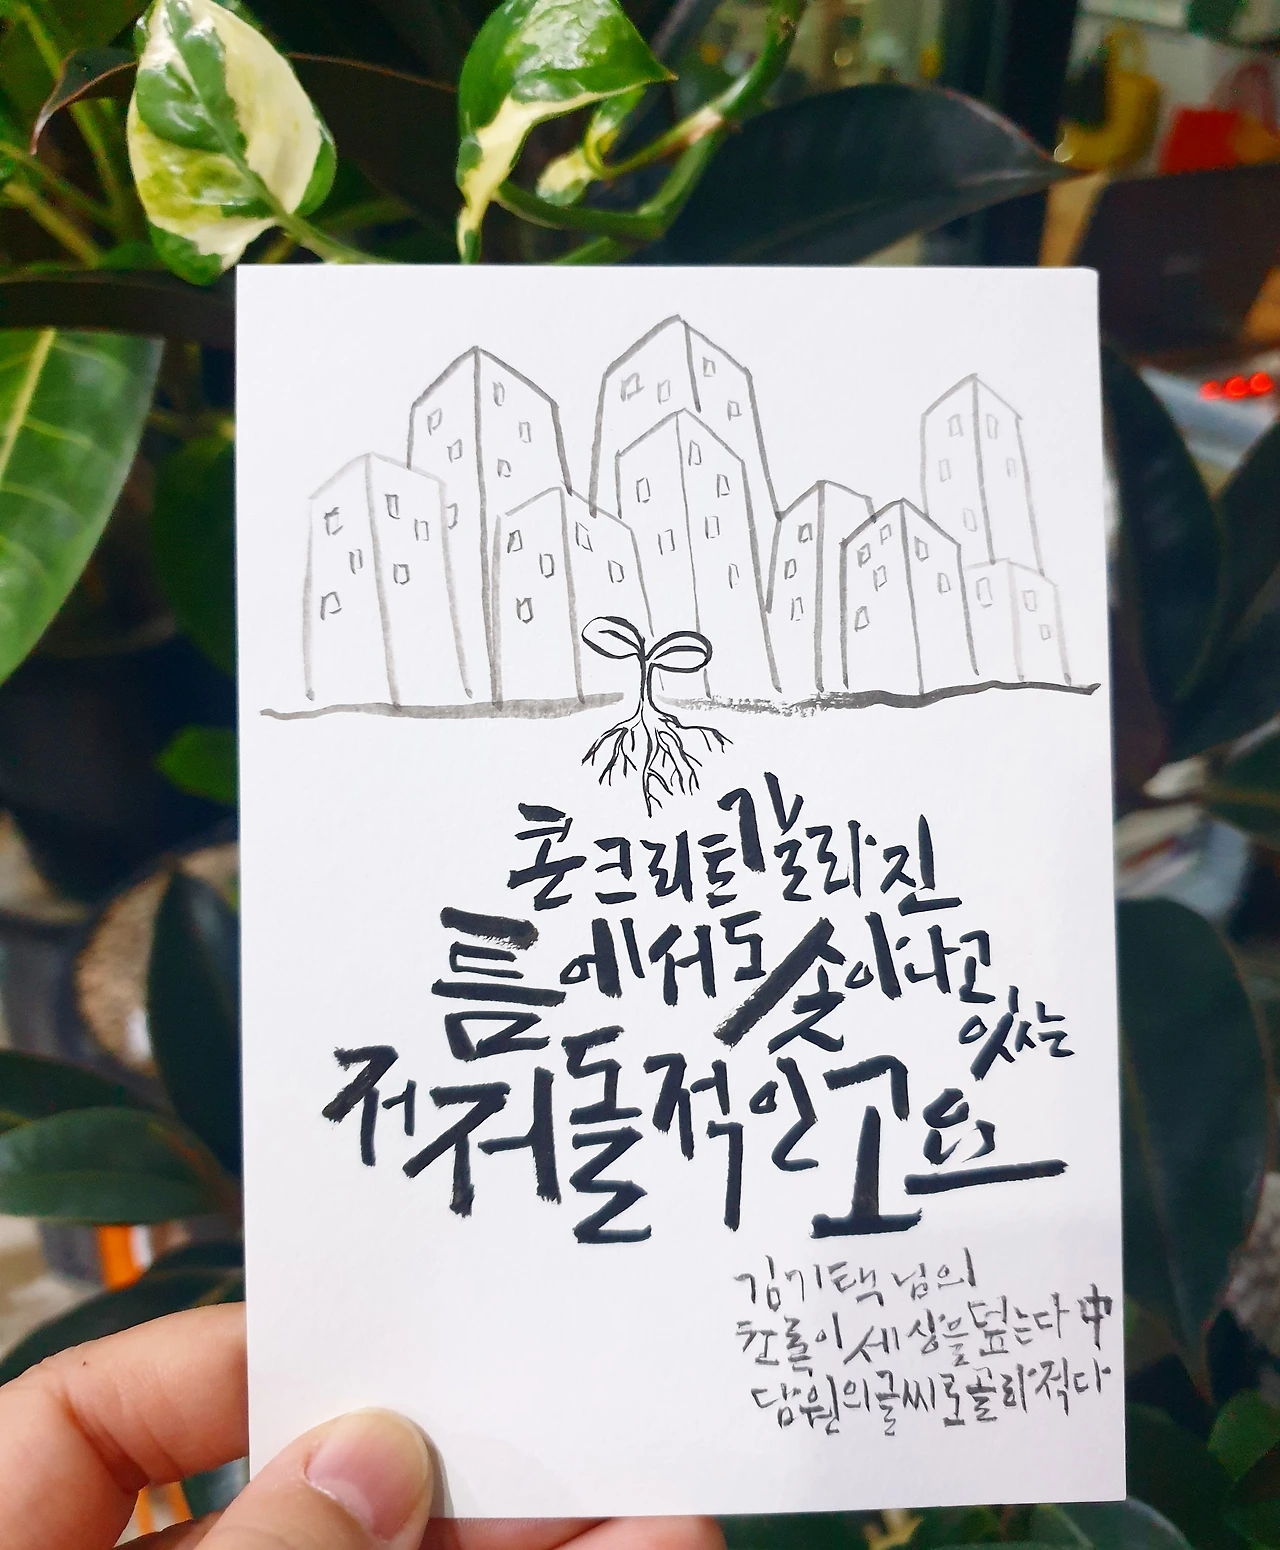 콘크리트 갈라진
틈에서도 솟아나고
있는
저 저돌적인 고요
김기택 님의
초록이 세상을 덮는다 中
담원의 글씨로 골라 적다